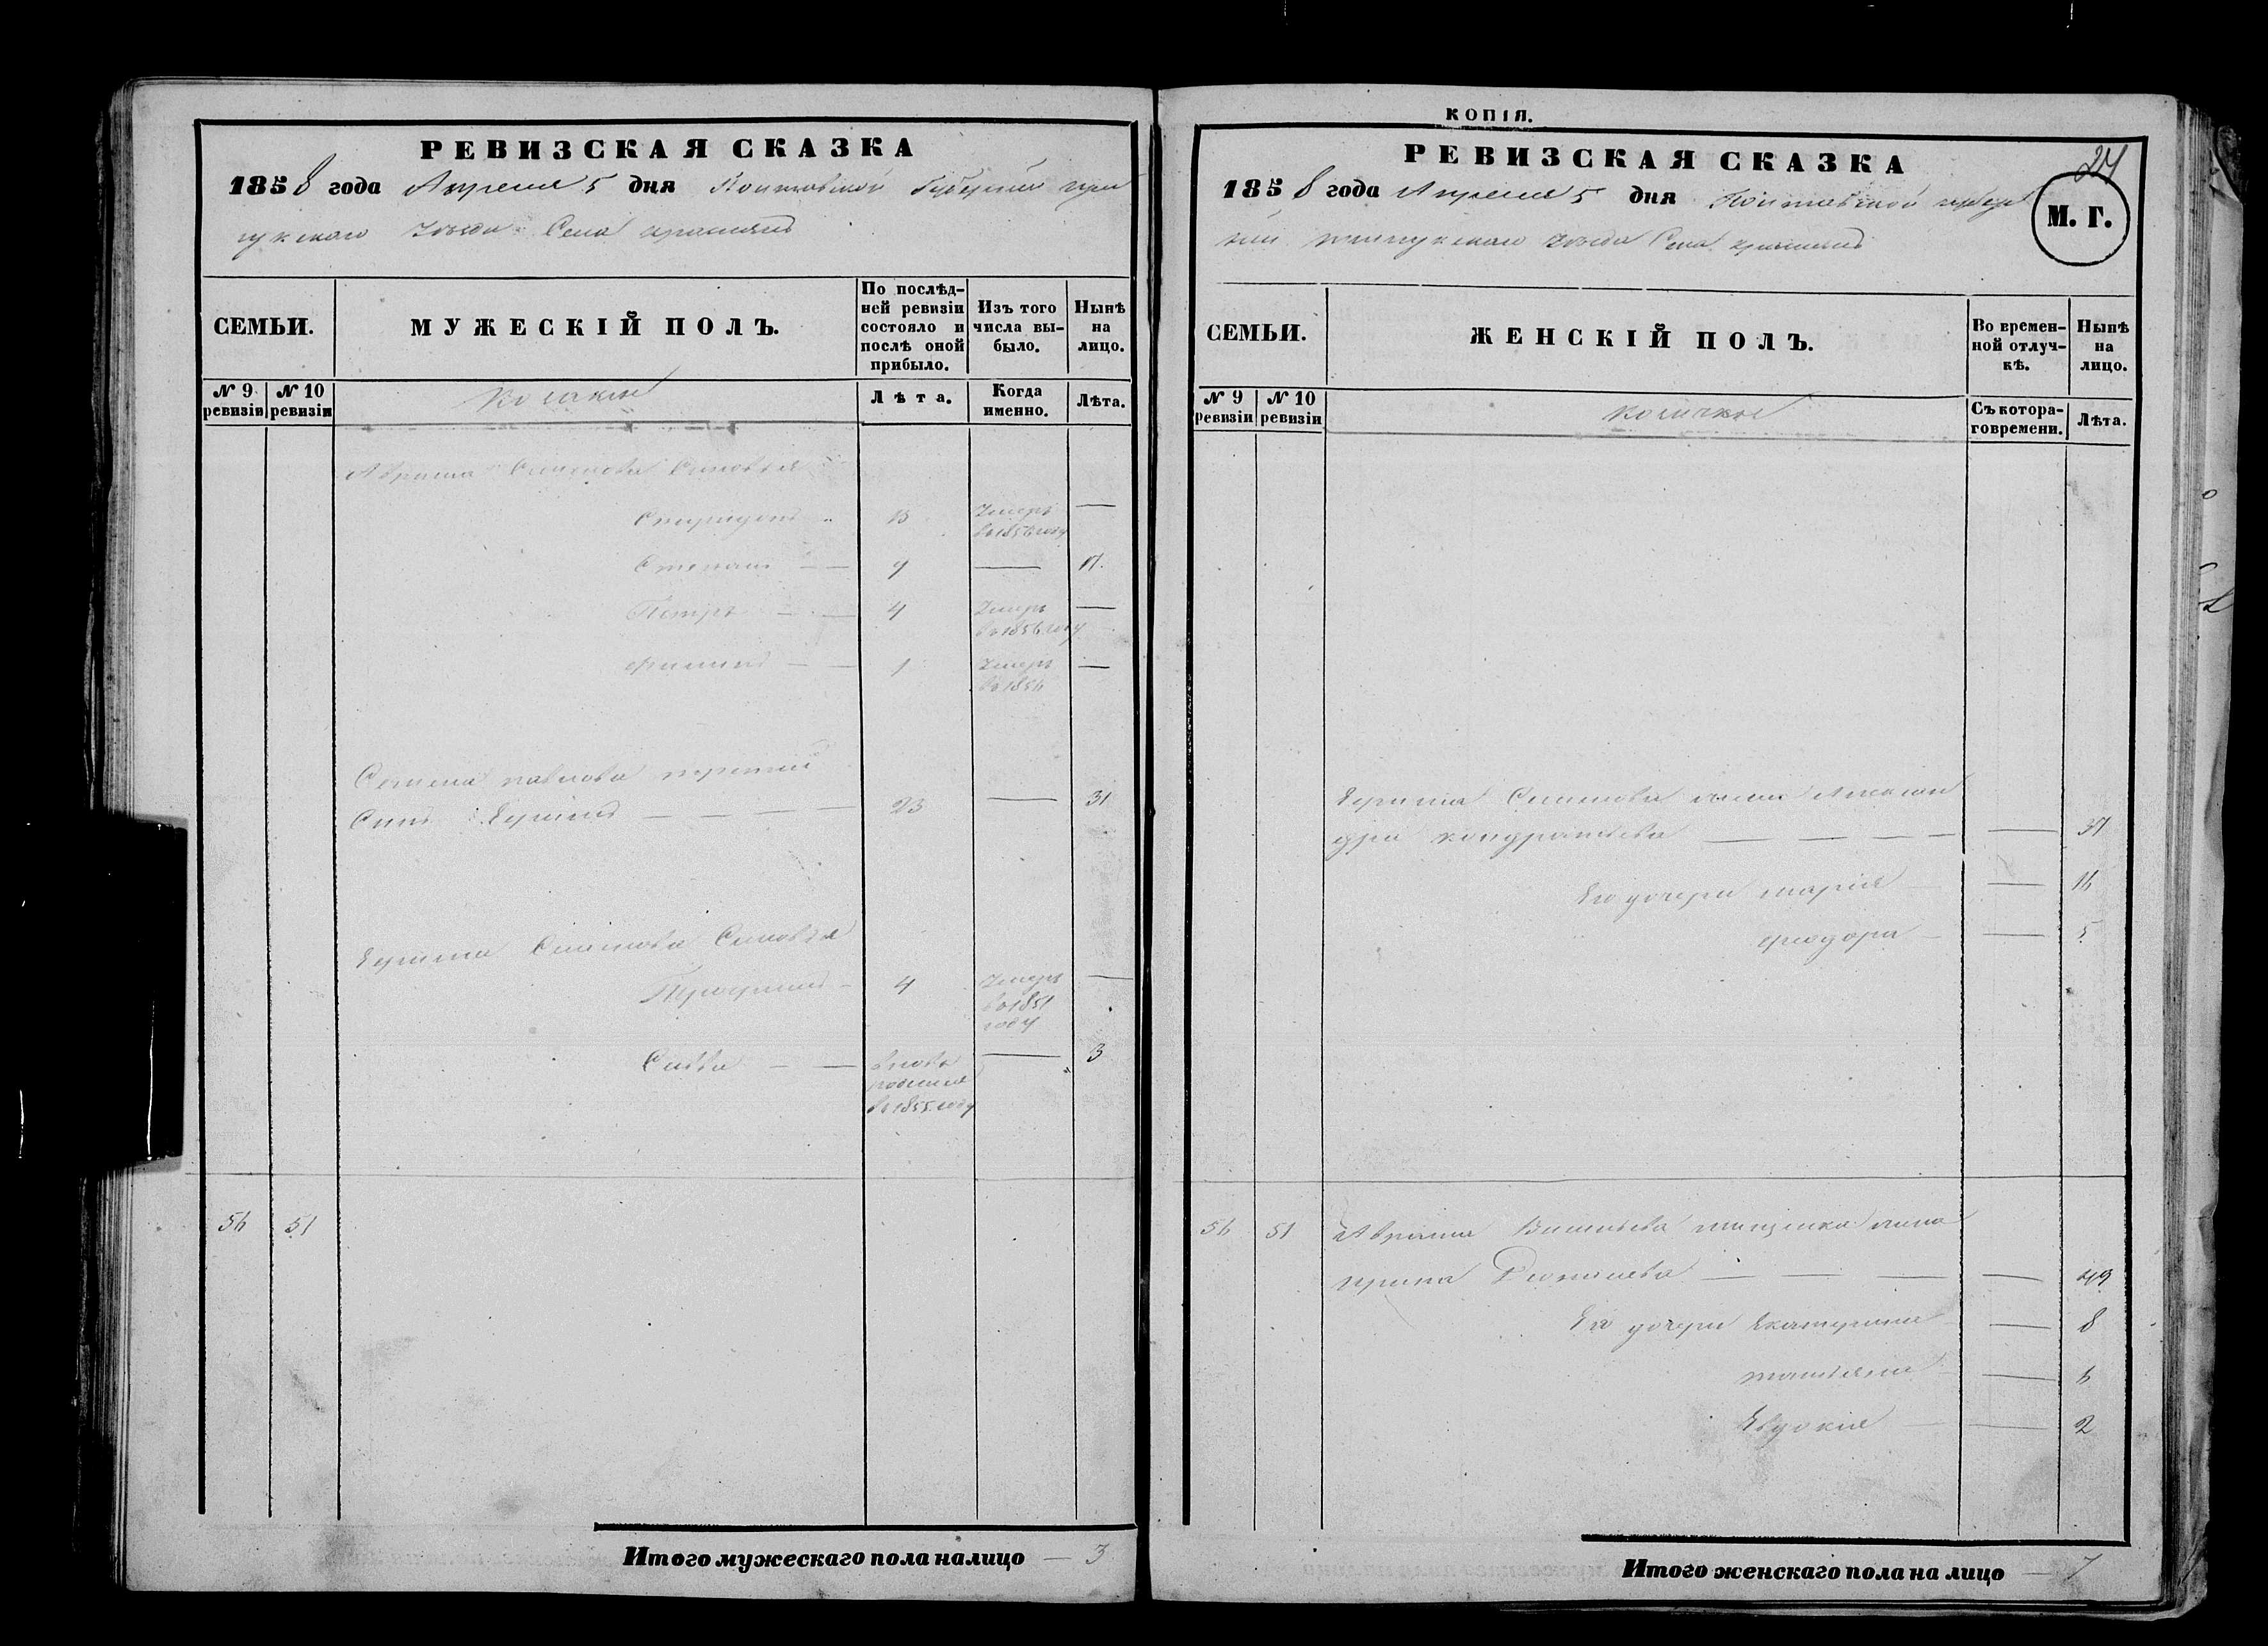 РЕВИЗСКАЯ СКАЗКА
1858 года Апреля 5 дня Полтавской Губернии при
лукскаго Уезда Села
СЕМЬИ.
МУЖЕСКІЙ ПОЛЪ.
По послѣд-
ней ревизіи
состояло и
послѣ оной
прибыло.
Изъ того
числа вы-
было.
Нынѣ
на
лицо.
№ 9
ревизіи
№ 10
ревизіи
Козаки
Лѣта.
Когда
именно.
Лѣта.
Абрама Семенова Сыновья
Спиридонъ 13 Умеръ
в 1856 году —
Степанъ — — 9 — 17.
Петръ — — 4 Умеръ
в 1856 году —
— — 1 Умеръ
в 1856 —
Семена Павлова третий
Сынъ Ефимъ — — — 23 — 31
Ефима Семенова Сыновья
4 Умеръ
в 1851
году —
Савва — — вновь
рожден
в 1855 году — 3
56 51
Итого мужескаго пола налицо — 3
КОПІЯ.
РЕВИЗСКАЯ СКАЗКА
1858 года Апреля 5 дня Полтавской губер
нии прилукскаго Уезда Села
М. Г.
СЕМЬИ.
ЖЕНСКІЙ ПОЛЪ.
Во времен-
ной отлуч-
кѣ.
Нынѣ
на
лицо.
№ 9
ревизіи
№ 10
ревизіи
Козачки
Съ котора-
го времени.
Лѣта.
Ефима Семенова жена Алексан
дра кондратьева — — — — — 37
Его дочери мария — 16
феодора — — 5
56 51 Абрама жена
ирина — — — — 49
Его дочери Екатерина — 8
татьяна — 6
Евдокия — — 2
Итого женскаго пола на лицо — 7